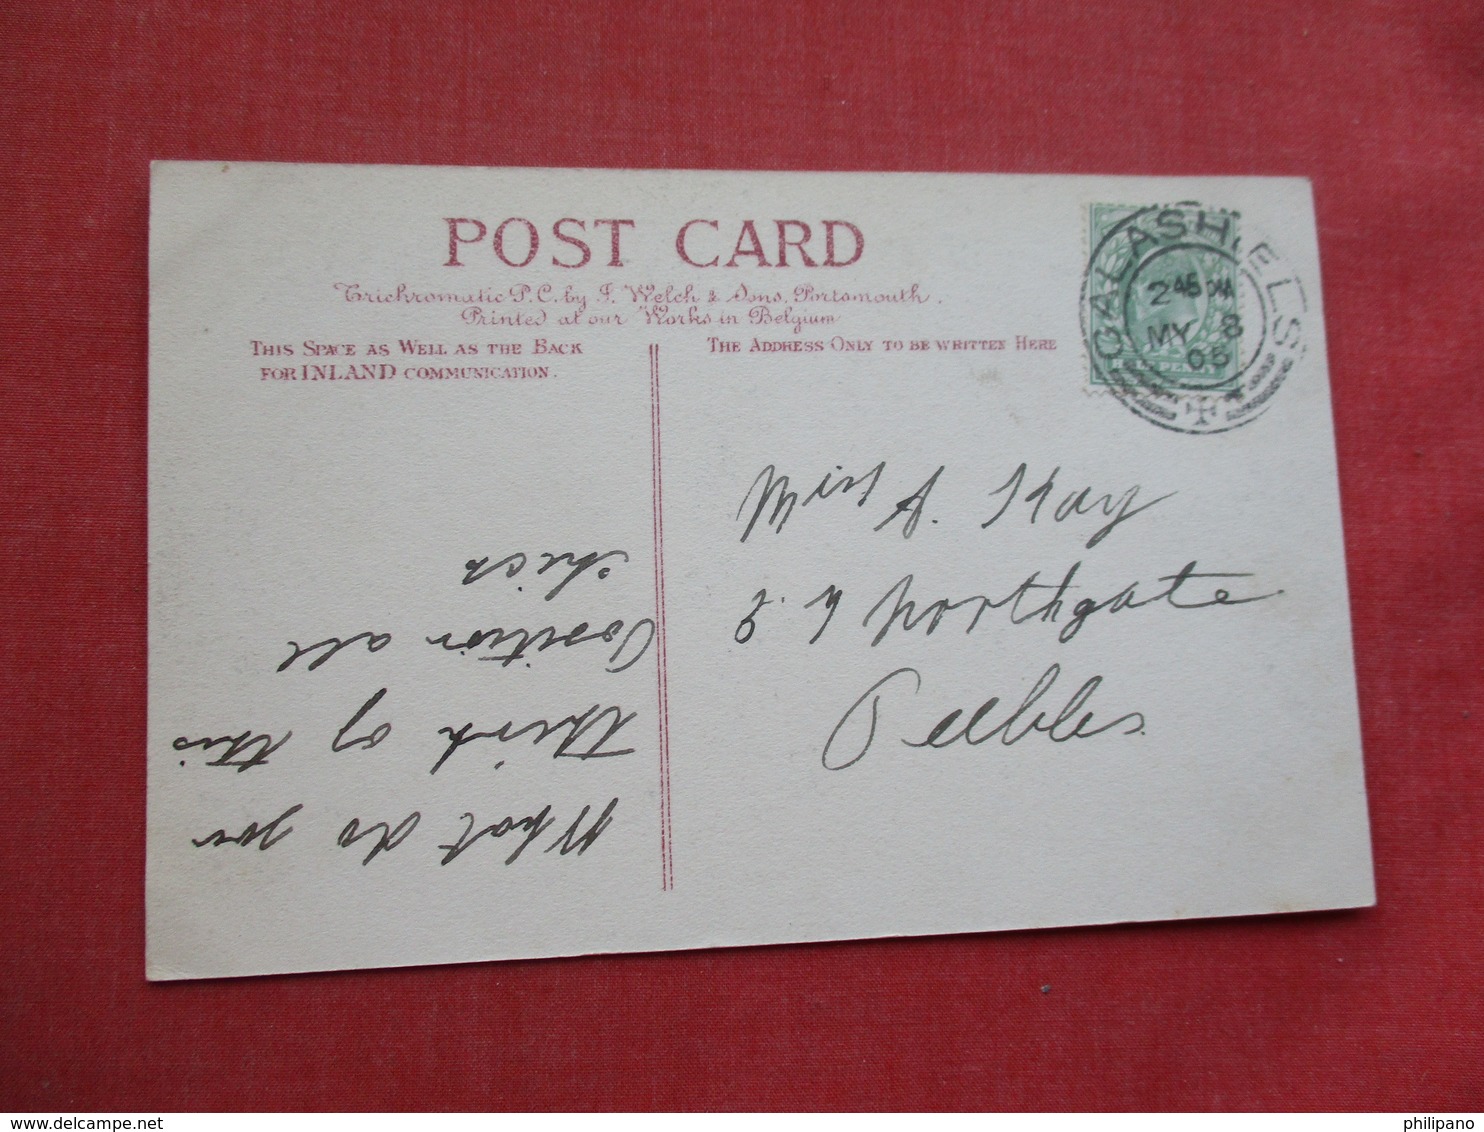 POST CARD
Trichromatic P.C. by J. Welch & Sons, Portsmouth.
Printed at our Works in Belgium
THIS SPACE AS WELL AS THE BACK
FOR INLAND COMMUNICATION.
THE ADDRESS ONLY TO BE WRITTEN HERE
GALASHIELS
2 45 PM
MY 8
05
Miss A. Kay
Northgate
Peebles
What do you
think of this
Position all
philipano
www.delcampe.net